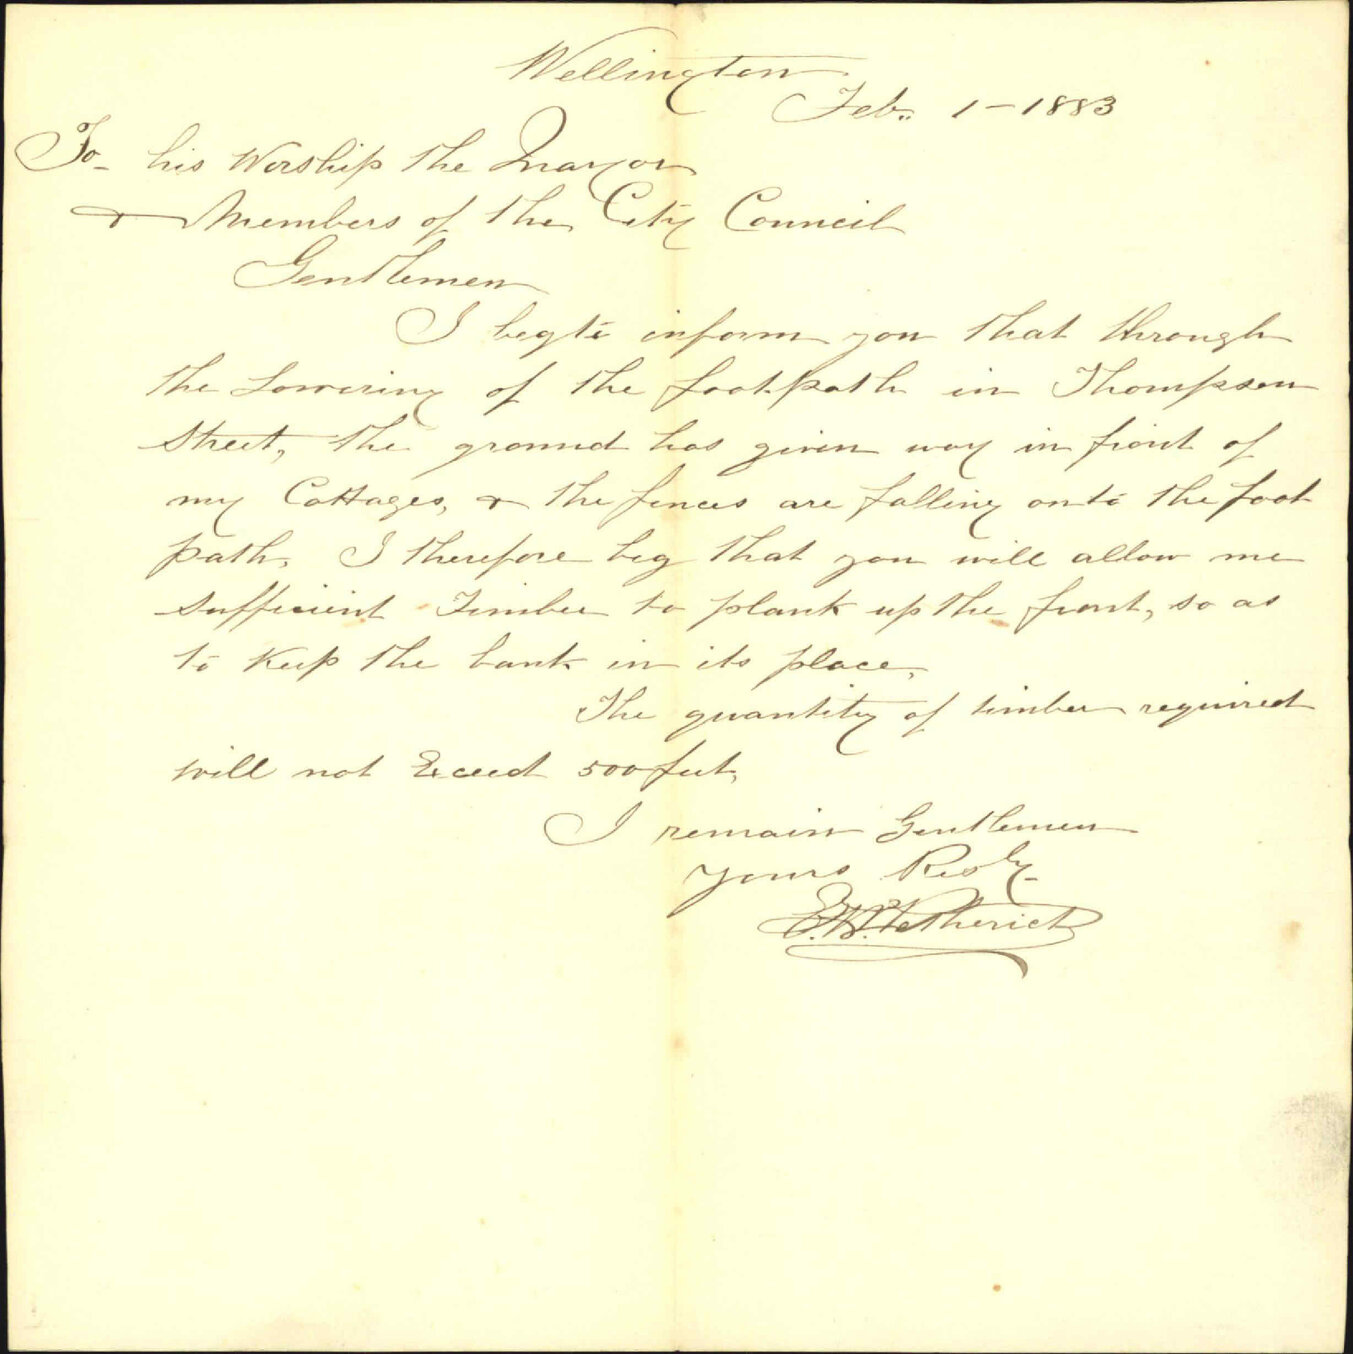 Wellington
Feb. 1 - 1883
To his Worship the Mayor
& Members of the City Council
Gentlemen
I beg to inform you that through
the Lowering of the footpath in Thompson
Street, the ground has given way in front of
my Cottages, & the fences are falling onto the foot
path. I therefore beg that you will allow me
sufficient Timber to plank up the front, so as
to Keep the bank in its place.
The quantity of timber required
will not Exceed 500 feet.
I remain Gentlemen
yours Resly
E.W. Petherick